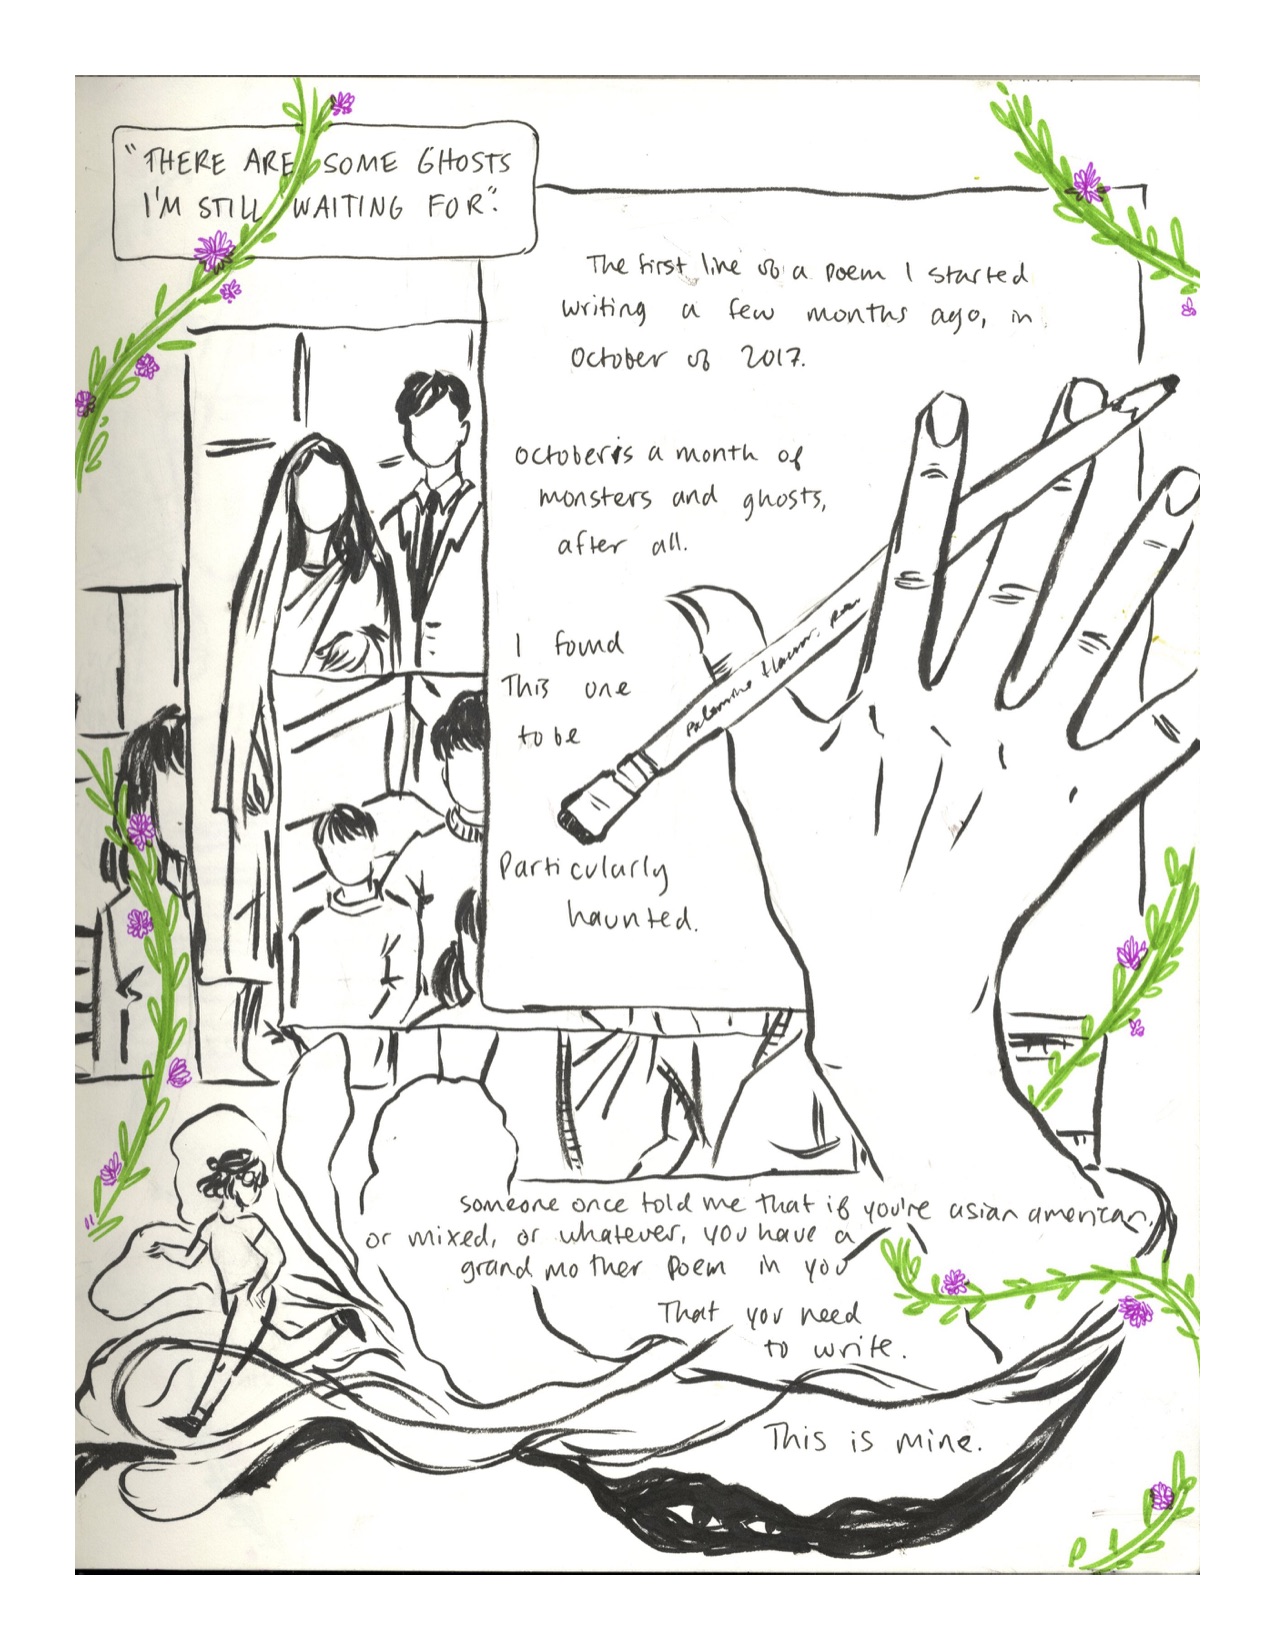 "THERE ARE SOME GHOSTS
I'M STILL WAITING FOR".
The first line of a poem I started
writing a few months ago, in
October of 2017.
October is a month of
monsters and ghosts,
after all.
I found
This one
to be
Particularly
haunted.
someone once told me that if you're asian american,
or mixed, or whatever, you have a
grandmother poem in you
That you need
to write.
This is mine.